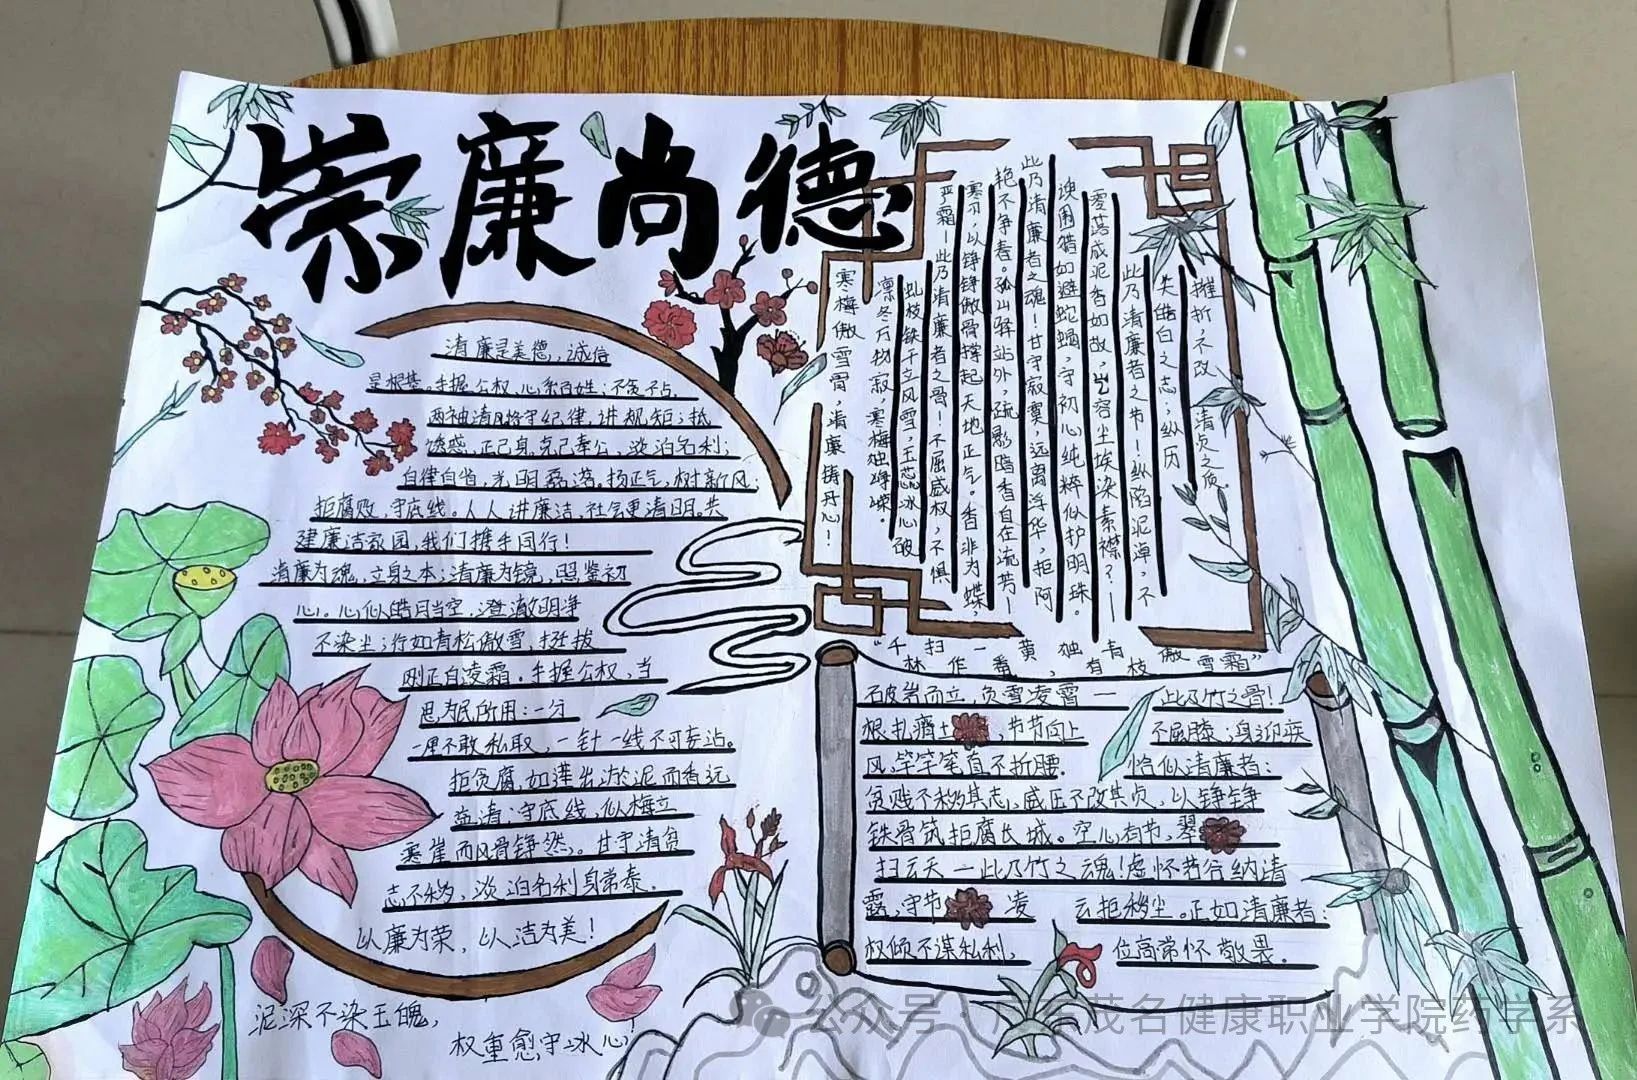 崇廉尚德
清廉是美德，诚信
是根基。手握公权，心系百姓；不贪不占，
两袖清风恪守纪律，讲规矩；抵
诱惑，正己身克己奉公，淡泊名利；
自律自省，光明磊落。扬正气，树新风，
拒腐败，守底线。人人讲廉洁，社会更清明。共
建廉洁家园，我们携手同行！
清廉为魂，立身之本；清廉为镜，照鉴初
心。心似皓月当空，澄澈明净
不染尘；行如青松傲雪，挺拔
刚正自凌霜。手握公权，当
思为民所用：一分
一厘不敢私取，一针一线不可妄沾。
拒贪腐，如莲出淤泥而香远
益清；守底线，似梅立
寒崖而风骨铮然。甘守清贫
志不移，淡泊名利身常泰。
以廉为荣，以洁为美！
泥深不染玉魄，
权重愈守冰心！
寒梅傲雪骨，清廉铸丹心！
凛冬万物寂，寒梅独峥嵘。
虬枝铁干立风雪，玉蕊冰心破
严霜—此乃清廉者之骨！不屈威权，不惧
寒刃，以铮铮傲骨撑起天地正气。香非为蝶，
艳不争春。孤山驿站外，疏影暗香自在流芳—
此乃清廉者之魂！甘守寂寞，远离浮华，拒阿
谀围猎如避蛇蝎，守初心纯粹似护明珠。
零落成泥香如故，容尘埃染素襟？—
此乃清廉者之节！纵陷泥淖，不
失皓白之志；纵历
摧折，不改清贞之质。
“千林扫作一番黄，独有青枝傲雪霜”
破岩而立，负雪凌霄—此乃竹之骨！
根扎瘠土，节节向上不屈膝；身迎疾
风，竿竿笔直不折腰。恰似清廉者：
贫贱不移其志，威压不改其贞，以铮铮
铁骨筑拒腐长城。空心有节，翠
扫云天—此乃竹之魂！虚怀若谷纳清
露，守节凌云拒秽尘。正如清廉者：
权倾不谋私利，位高常怀敬畏。
公众号·广东茂名健康职业学院药学系